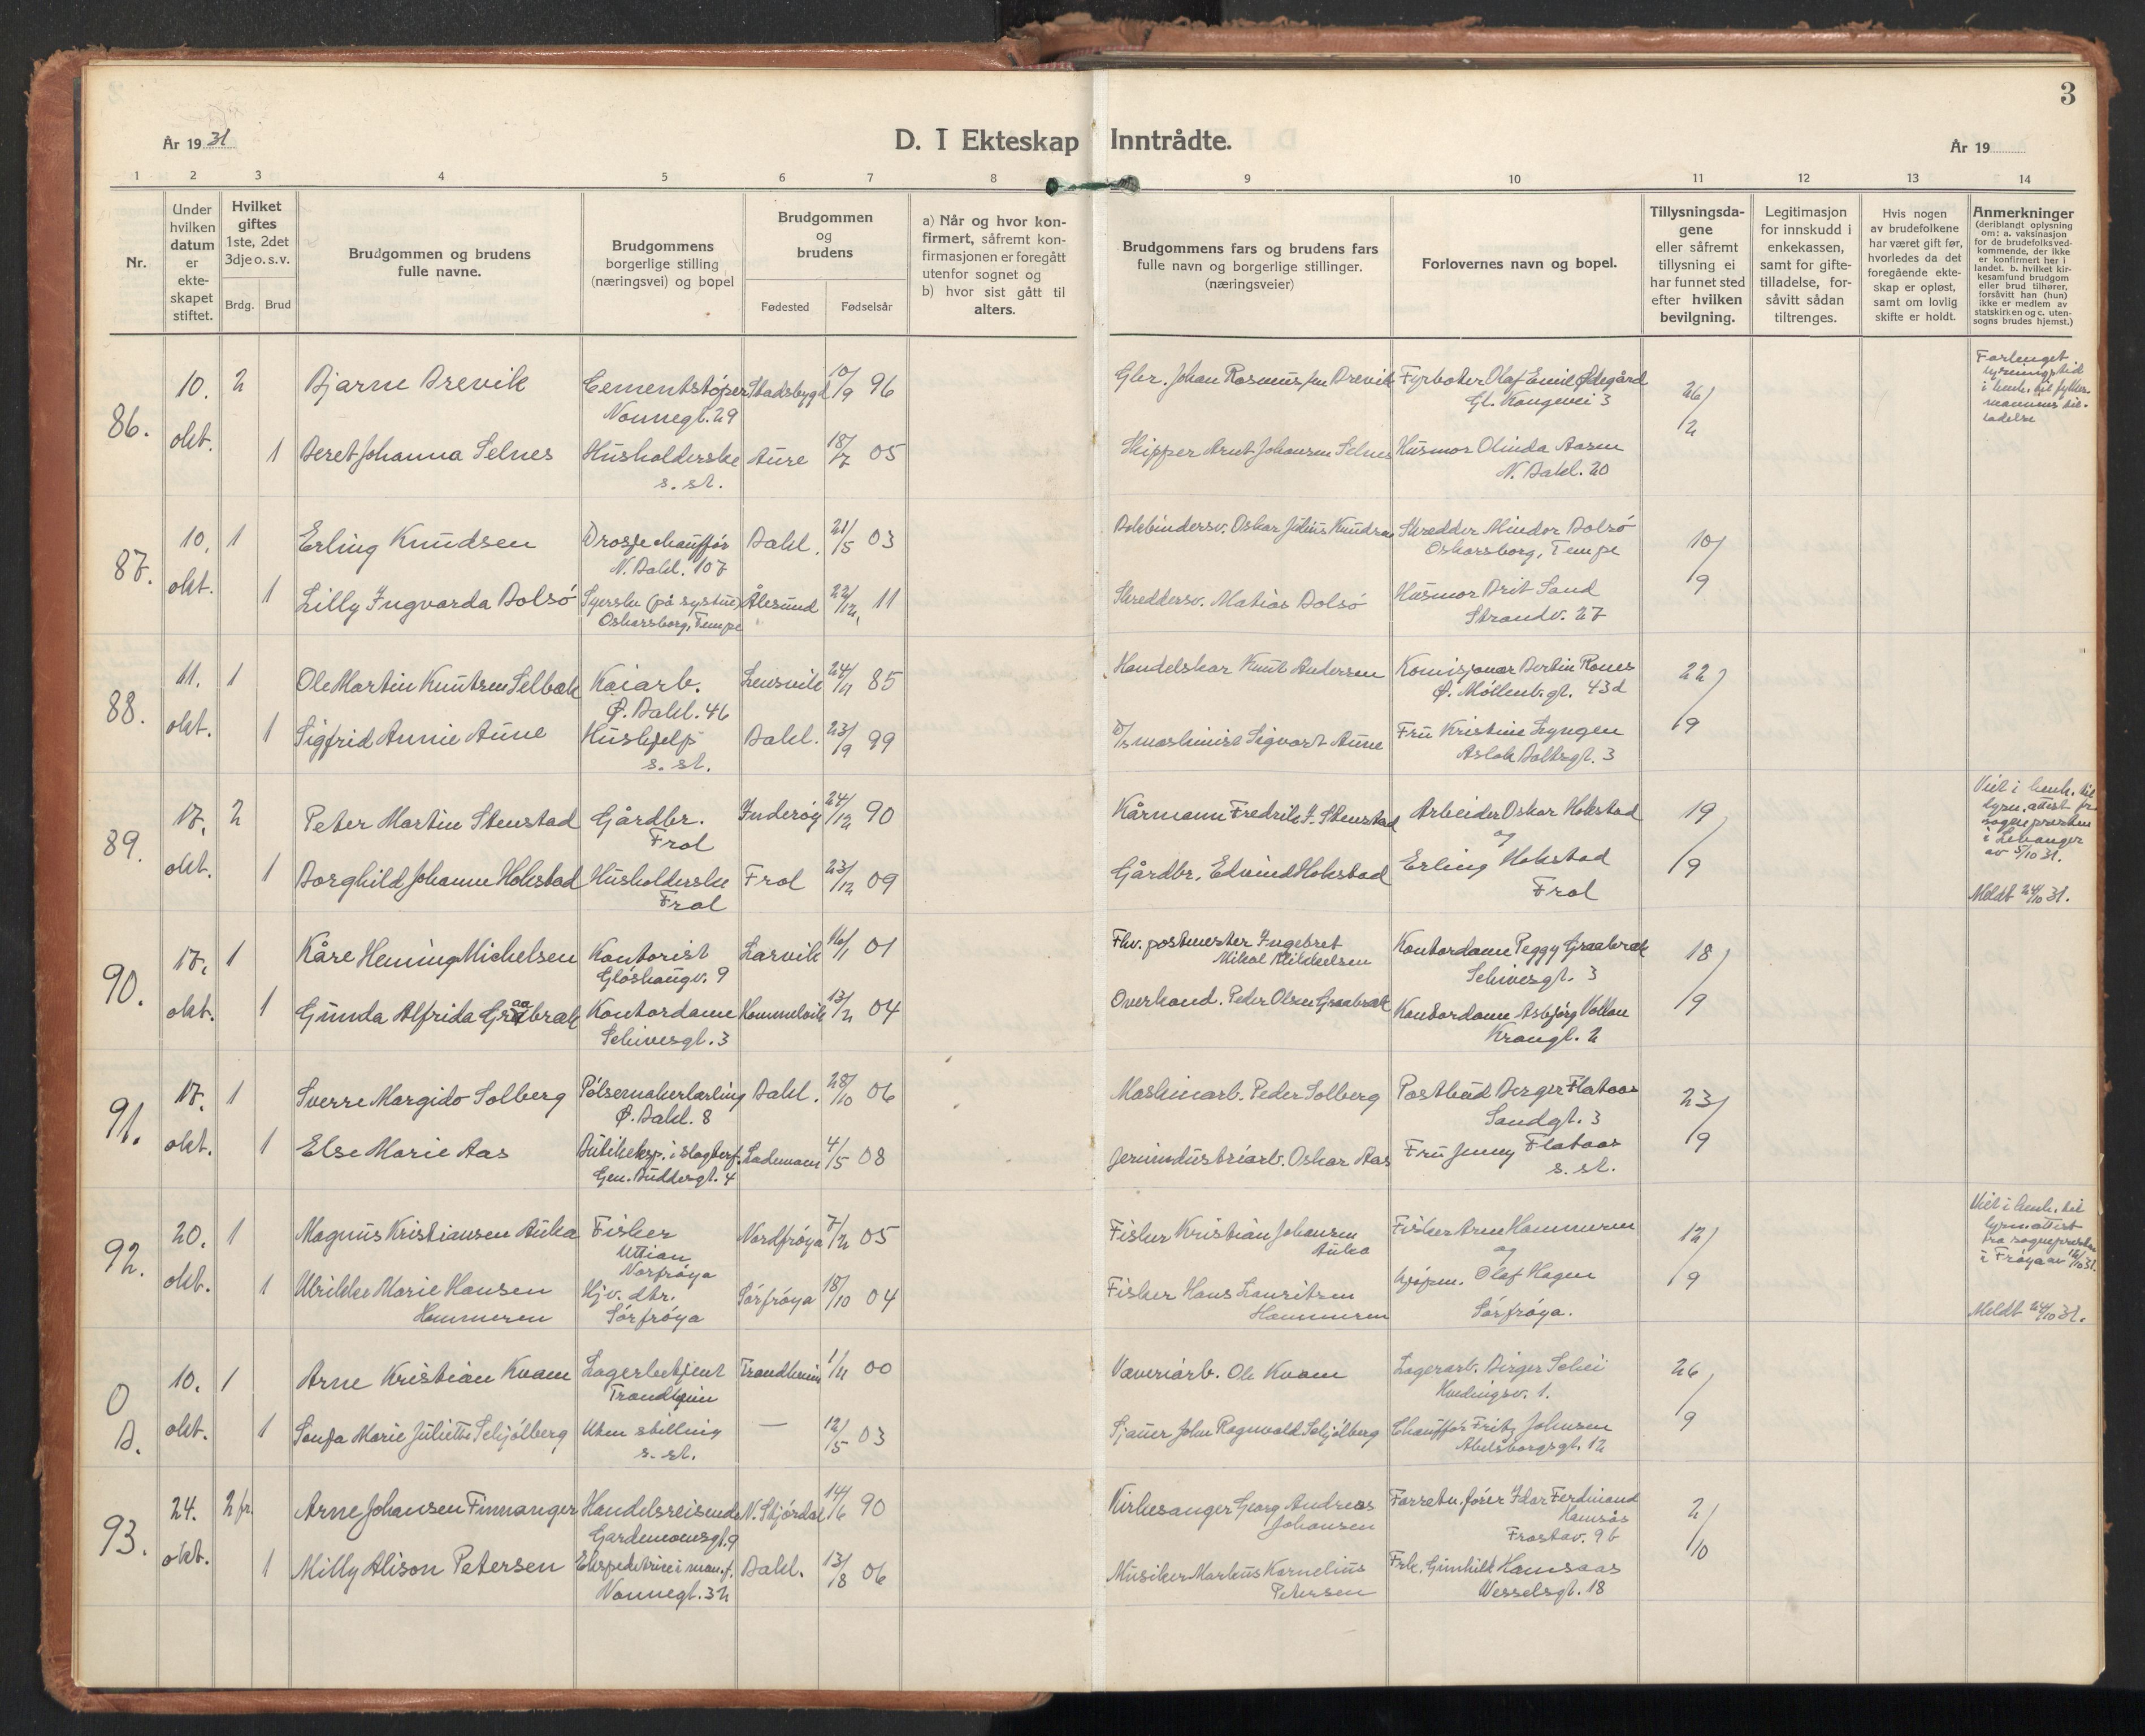 3
År 1931
D. I Ekteskap Inntrådte.
År 19
1 2 3 4 5 6 7 8 9 10 11 12 13 14
Nr.
Under hvilken datum er ekte-skapet stiftet.
Hvilket giftes 1ste, 2det 3dje o.s.v.
Brdg. Brud
Brudgommen og brudens fulle navne.
Brudgommens borgerlige stilling (næringsvei) og bopel
Brudgommen og brudens
Fødested Fødselsår
a) Når og hvor kon-firmert, såfremt kon-firmasjonen er foregått utenfor sognet og
b) hvor sist gått til alters.
Brudgommens fars og brudens fars fulle navn og borgerlige stillinger. (næringsveier)
Forlovernes navn og bopel.
Tillysningsda-gene eller såfremt tillysning ei har funnet sted efter hvilken bevilgning.
Legitimasjon for innskudd i enkekassen, samt for gifte-tilladelse, for-såvitt sådan tiltrenges.
Hvis nogen av brudefolkene har været gift før, hvorledes da det foregående ekte-skap er opløst, samt om lovlig skifte er holdt.
Anmerkninger (deriblandt oplysning om: a. vaksinasjon for de brudefolks ved-kommende, der ikke er konfirmert her i landet. b. hvilket kir-kesamfund brudgom eller brud tilhører, forsåvitt han (hun) ikke er medlem av statskirken og c. uten-sogns brudes hjemst.)
86. 10. okt. 2 Bjarne Brevik Cementstøper Nonnegt. 29 Stadsbygd 10/9 96 Gbr. Johan Rasmussen Brevik Fyrbøter Olaf Emil Ødegård Gl. Kongevei 3 26/2 Forlenget lysningstid i henh. til fylkesmannens tilladelse
1 Beret Johanna Selnes Husholderske s. st. Aure 18/7 05 Skipper Arnt Johansen Selnes Husmor Olinda Aasen N. Bakl. 20
87. 10. okt. 1 Erling Knudsen Drosjechauffør N. Bakl. 107 Bakl. 21/5 03 Bokbindersv. Oskar Julius Knudsen Skredder Mindor Bolsø Oskarsborg, Tempe 10/9
1 Lilly Ingvarda Bolsø Syerske (på systue) Oskarsborg, Tempe Ålesund 22/12 11 Skreddersv. Matias Bolsø Husmor Brit Sand Strandv. 27
88. 11. okt. 1 Ole Martin Knutsen Selbæk Kaiarb. Ø. Bakl. 46 Lensvik 24/11 85 Handelskar Knut Andersen Komisjonær Bertin Rones Ø. Møllenb.gt. 43d 22/9
1 Sigfrid Annie Aune Hushjelp s. st. Bakl. 23/9 99 D/s maskinist Sigvart Aune Fru Kristine Lyngen Aslak Boltsgt. 3
89. 17. okt. 2 Peter Martin Stenstad Gårdbr. Frol Inderøy 24/12 90 Kårmann Fredrik J. Stenstad Arbeider Oskar Hokstad og 19/9 Viet i henh. til lysn.attest fra sognepresten i Levanger av 5/10 31.
1 Borghild Johanne Hokstad Husholderske Frol Frol 23/12 09 Gårdbr. Edvind Hokstad Erling Hokstad Frol Meldt 24/10 31.
90. 17. okt. 1 Kåre Henning Michelsen Kontorist Gløshaugv. 9 Larvik 16/1 01 Fhv. postmester Ingebret Mikal Mikkelsen Kontordame Peggy Graabræk Schivesgt. 3 18/9
1 Gunda Alfrida Graabræk Kontordame Schivesgt. 3 Hommelvik 13/2 04 Overkond. Peder Olsen Graabræk Kontordame Asbjørg Vollan Krangt. 2
91. 17. okt. 1 Sverre Margido Solberg Pølsemakerlærling Ø. Bakl. 8 Bakl. 28/10 06 Maskinarb. Peder Solberg Postbud Berger Flataas Sandgt. 3 23/9
1 Else Marie Aas Butikeksp. i slagterf. Gen. Buddesgt. 4 Lademoen 4/5 08 Jernindustriarb. Oskar Aas Fru Jenny Flataas s. st.
92. 20. okt. 1 Magnus Kristiansen Auka Fisker Uttian Norfrøya Nordfrøya 7/2 05 Fisker Kristian Johansen Auka Fisker Arne Hammeren og 12/9 Viet i henh. til lysn.attest fra sognepresten i Frøya av 12/10 31.
1 Ulrikke Marie Hansen Hammeren Hjv. dtr. Sørfrøya Sørfrøya 18/10 04 Fisker Hans Lauritsen Hammeren Kjøpm. Olaf Hagen Sørfrøya. Meldt 24/10 31.
O B. 10. okt. 1 Arne Kristian Kvam Lagerbetjent Trondheim Trondheim 1/11 00 Væveriarb. Ole Kvam Lagerarb. Birger Schei Hvedingsv. 1. 26/9
1 Sonja Marie Juliette Schjølberg Uten stilling s. st. — 12/5 03 Sjauer John Ragnvald Schjølberg Chauffør Fritz Johnsen Abelsborgsgt. 12
93. 24. okt. 2 fr. Arne Johansen Finnanger Handelsreisende Gardemoensgt. 9 N. Stjørdal 14/6 90 Kirkesanger Georg Andreas Johansen Forretn.fører Idar Ferdinand Hamsås Frostav. 9b 2/10
1 Milly Alison Petersen Ekspeditrise i man.f. Nonnegt. 32 Bakl. 13/8 06 Musiker Markus Kornelius Petersen Frk. Gunhild Hamsaas Wesselsgt. 18